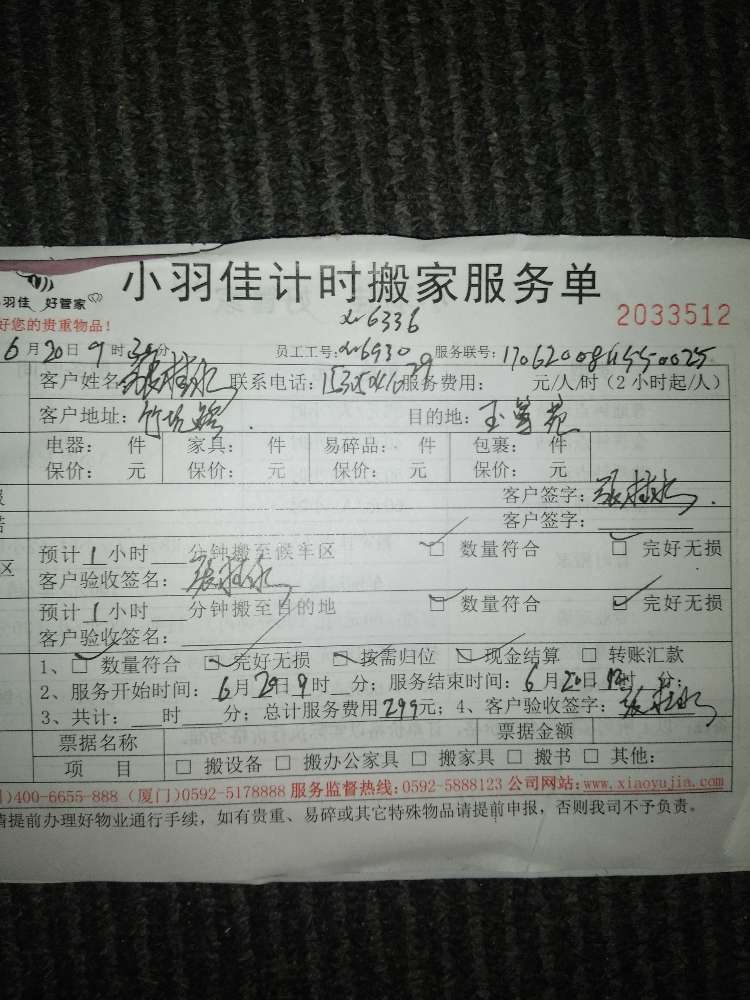 小羽佳计时搬家服务单
羽佳 好管家
2033512
好您的贵重物品！
xr6336
6月20日9时30分 员工工号：xr6930 服务联号：
客户姓名 联系电话： 服务费用： 元/人/时（2小时起/人）
客户地址： 目的地：
电器： 件 家具： 件 易碎品： 件 包裹： 件
保价： 元 保价： 元 保价： 元 保价： 元
客户签字：
客户签字：
区 预计1小时 分钟搬至候车区 □ 数量符合 □ 完好无损
客户验收签名：
预计1小时 分钟搬至目的地 □ 数量符合 □ 完好无损
客户验收签名：
1、□ 数量符合 □ 完好无损 □ 按需归位 □ 现金结算 □ 转账汇款
2、服务开始时间：6月20日9时 分；服务结束时间：6月20日 时 分；
3、共计： 时 分；总计服务费用299元；4、客户验收签字：
票据名称 票据金额
项 目 □ 搬设备 □ 搬办公家具 □ 搬家具 □ 搬书 □ 其他：
)400-6655-888 (厦门)0592-5178888 服务监督热线：0592-5888123 公司网站：www.xiaoyujia.com
请提前办理好物业通行手续，如有贵重、易碎或其它特殊物品请提前申报，否则我司不予负责。